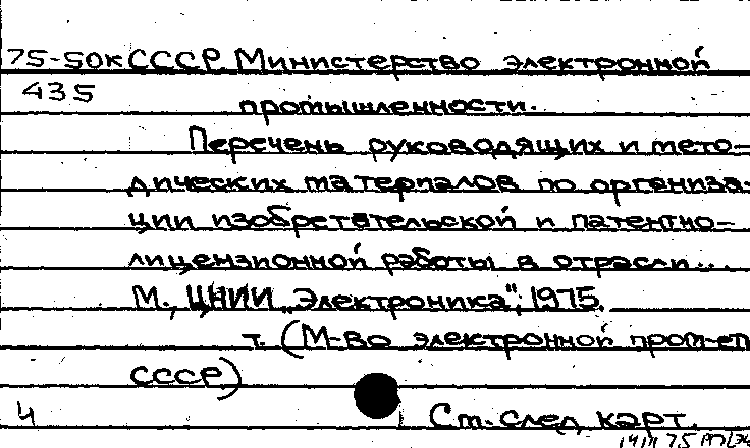 75-50к СССР. Министерство электронной
435
промышленности.
Перечень руководящих и мето-
дических материалов по организа-
ции изобретательской и патентно-
лицензионной работы в отрасли...
М., ЦНИИ „Электроника", 1975.
т. (М-во электронной пром-сти
СССР)
4
См. след. карт.